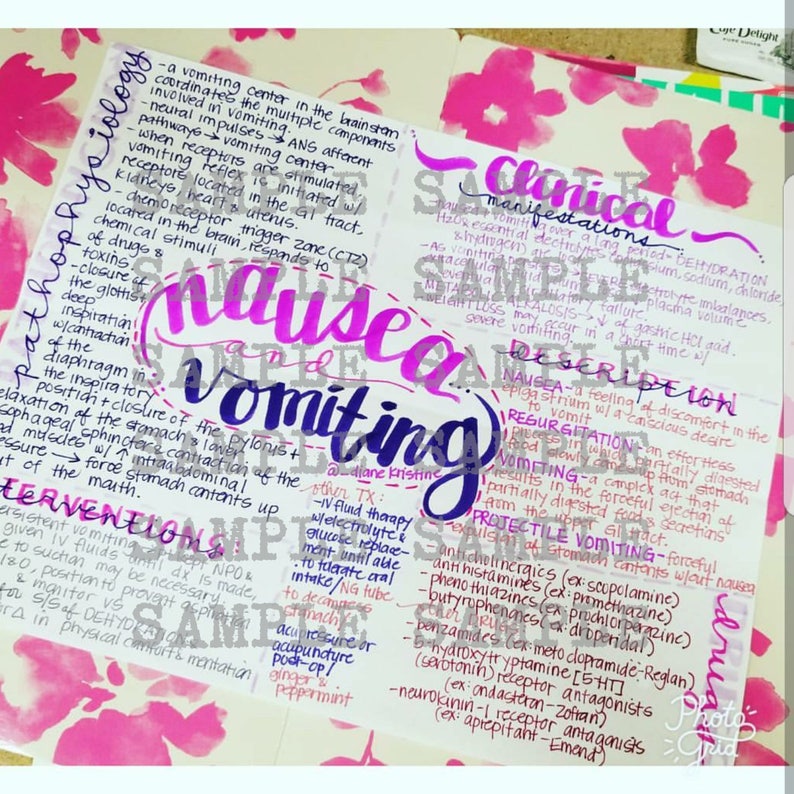 Cafe Delight
pathophysiology
-a vomiting center in the brainstem
coordinates the multiple components
involved in vomiting.
-neural impulses → ANS afferent
pathways → vomiting center
-when receptors are stimulated,
vomiting reflex is initiated by
receptors located in the GI tract,
kidneys, heart & uterus.
-chemoreceptor trigger zone (CTZ)
located in the brain, responds to
chemical stimuli
of drugs &
toxins
-closure of
the glottis,
deep
inspiration
w/ contraction
of the
diaphragm in
the inspiratory
position + closure of the pylorus +
relaxation of the stomach & lower
esophageal sphincter, contraction of the
abd muscles w/ ↑ intraabdominal
pressure → force stomach contents up
out of the mouth.
nausea
and
vomiting
@_diane kristine
Clinical
manifestations
nausea & vomiting over a long period - DEHYDRATION
H2O & essential electrolytes (potassium, sodium, chloride,
& hydrogen) are lost
-As vomiting persists - SEVERE electrolyte imbalances,
extracellular plasma volume
eventual circulatory failure.
METABOLIC ALKALOSIS → ↓ of gastric HCl acid.
WEIGHT LOSS may occur in a short time w/
severe vomiting.
DESCRIPTION
description
NAUSEA- a feeling of discomfort in the
epigastrium w/ a conscious desire
to vomit
RESURGITATION- an effortless
process in which partially digested
food slowly come up from stomach
VOMITING- a complex act that
results in the forceful ejection of
partially digested food & secretions
from the upper GI tract.
PROJECTILE VOMITING- forceful
expulsion of stomach contents w/out nausea
INTERVENTIONS:
interventions
persistent vomiting NPO &
given IV fluids until dx is made.
to suction may be necessary.
I&O, position to prevent aspiration
& monitor VS
for S/S of DEHYDRATION
for Δ in physical comfort & mentation
other Tx:
-IV fluid therapy
w/ electrolyte &
glucose replace-
ment until able
to tolerate oral
intake/ NG tube
to decompress
stomach
acupressure or
acupuncture
post-op/
ginger &
peppermint
drugs
DRUGS
-anticholinergics (ex: scopolamine)
-antihistamines (ex: promethazine)
-phenothiazines (ex: prochlorperazine)
-butyrophenones (ex: droperidol)
other drugs:
-benzamides (ex: metoclopramide-Reglan)
-5-hydroxytryptamine [5-HT]
(serotonin) receptor antagonists
(ex: ondasteron-zofran)
-neurokinin-1 receptor antagonists
(ex: aprepitant-Emend)
SAMPLE SAMPLE
SAMPLE SAMPLE
SAMPLE SAMPLE
SAMPLE SAMPLE
SAMPLE SAMPLE
SAMPLE SAMPLE
Photo
Grid